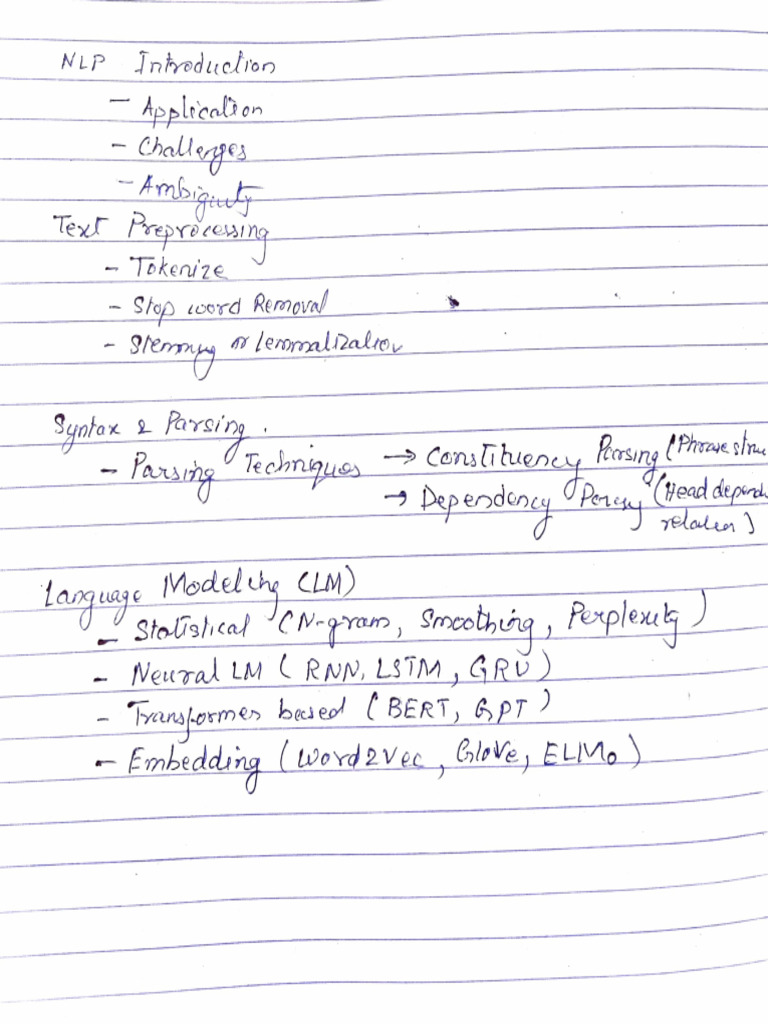 NLP Introduction
- Application
- Challenges
- Ambiguity
Text Preprocessing
- Tokenize
- Stop word Removal
- Stemming or Lemmatization
Syntax & Parsing.
- Parsing Techniques → Constituency Parsing (Phrase struc
→ Dependency Parsing (Head depend
relation)
Language Modeling (LM)
- Statistical (N-gram, Smoothing, Perplexity)
- Neural LM (RNN, LSTM, GRU)
- Transformer based (BERT, GPT)
- Embedding (Word2Vec, GloVe, ELMo)